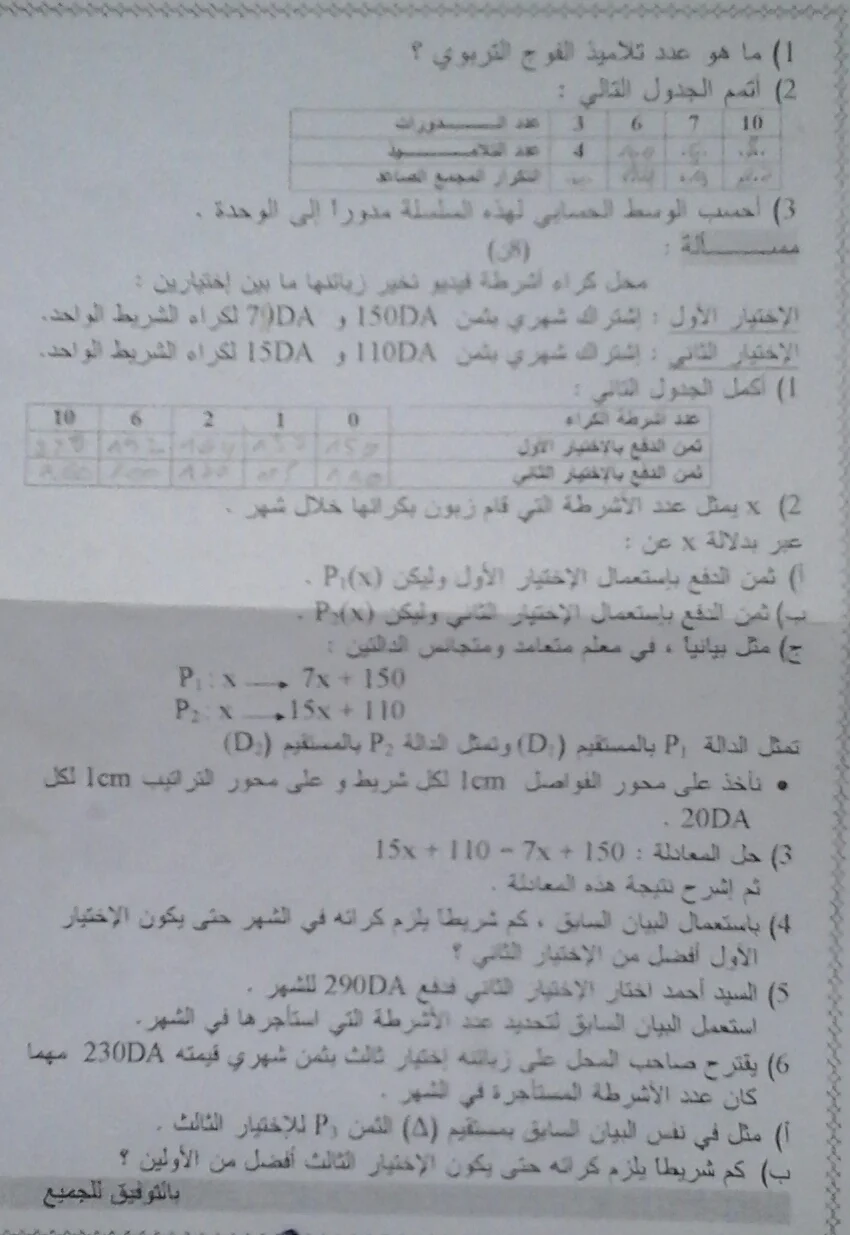 1) ما هو عدد تلاميذ الفوج التربوي ؟
2) أتمم الجدول التالي :
عدد الـــــدورات 3 6 7 10
عدد التلاميـــــذ 4
التكرار المجمع الصاعد
3) أحسب الوسط الحسابي لهذه السلسلة مدورا إلى الوحدة .
ممســـــألة : (8ن)
محل كراء أشرطة فيديو تخير زبائنها ما بين إختيارين :
الإختيار الأول : إشتراك شهري بثمن 150DA و 7DA لكراء الشريط الواحد.
الإختيار الثاني : إشتراك شهري بثمن 110DA و 15DA لكراء الشريط الواحد.
1) أكمل الجدول التالي :
عدد أشرطة الكراء 0 1 2 6 10
ثمن الدفع بالإختيار الأول 150 192
ثمن الدفع بالإختيار الثاني
2) x يمثل عدد الأشرطة التي قام زبون بكرائها خلال شهر .
عبر بدلالة x عن :
أ) ثمن الدفع بإستعمال الإختيار الأول وليكن P₁(x) .
ب) ثمن الدفع بإستعمال الإختيار الثاني وليكن P₂(x) .
ج) مثل بيانيا ، في معلم متعامد ومتجانس الدالتين :
P₁ : x → 7x + 150
P₂ : x → 15x + 110
تمثل الدالة P₁ بالمستقيم (D₁) وتمثل الدالة P₂ بالمستقيم (D₂)
• نأخذ على محور الفواصل 1cm لكل شريط و على محور التراتيب 1cm لكل
20DA .
3) حل المعادلة : 15x + 110 = 7x + 150
ثم إشرح نتيجة هذه المعادلة .
4) باستعمال البيان السابق ، كم شريطا يلزم كرائه في الشهر حتى يكون الإختيار
الأول أفضل من الإختيار الثاني ؟
5) السيد أحمد اختار الإختيار الثاني فدفع 290DA للشهر .
استعمل البيان السابق لتحديد عدد الأشرطة التي استأجرها في الشهر.
6) يقترح صاحب المحل على زبائنه إختيار ثالث بثمن شهري قيمته 230DA مهما
كان عدد الأشرطة المستأجرة في الشهر .
أ) مثل في نفس البيان السابق بمستقيم (Δ) الثمن P₃ للإختيار الثالث .
ب) كم شريطا يلزم كرائه حتى يكون الإختيار الثالث أفضل من الأولين ؟
بالتوفيق للجميع